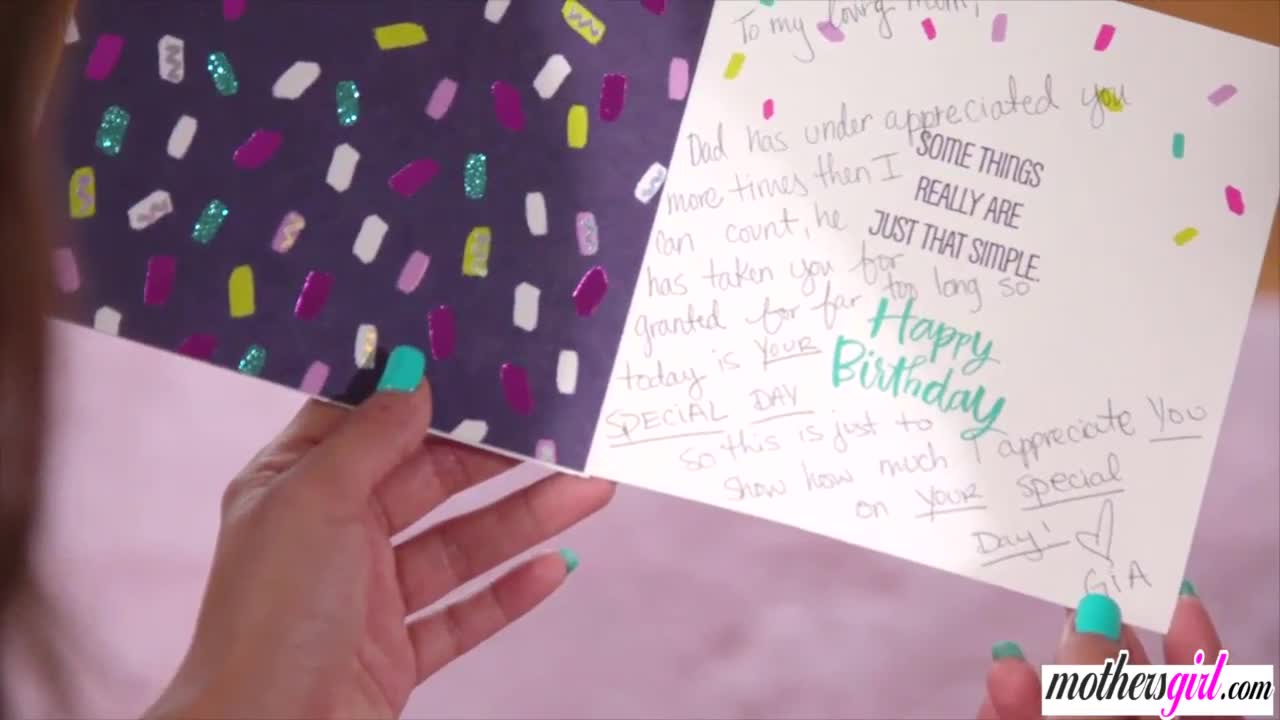 To my loving mom,
Dad has under appreciated you
more times then I
can count, he
has taken you for
granted for far too long so
today is YOUR
SPECIAL DAY
so this is just to
show how much I appreciate YOU
on YOUR special
Day! ♡
GiA
SOME THINGS
REALLY ARE
JUST THAT SIMPLE.
Happy
Birthday
mothersgirl.com